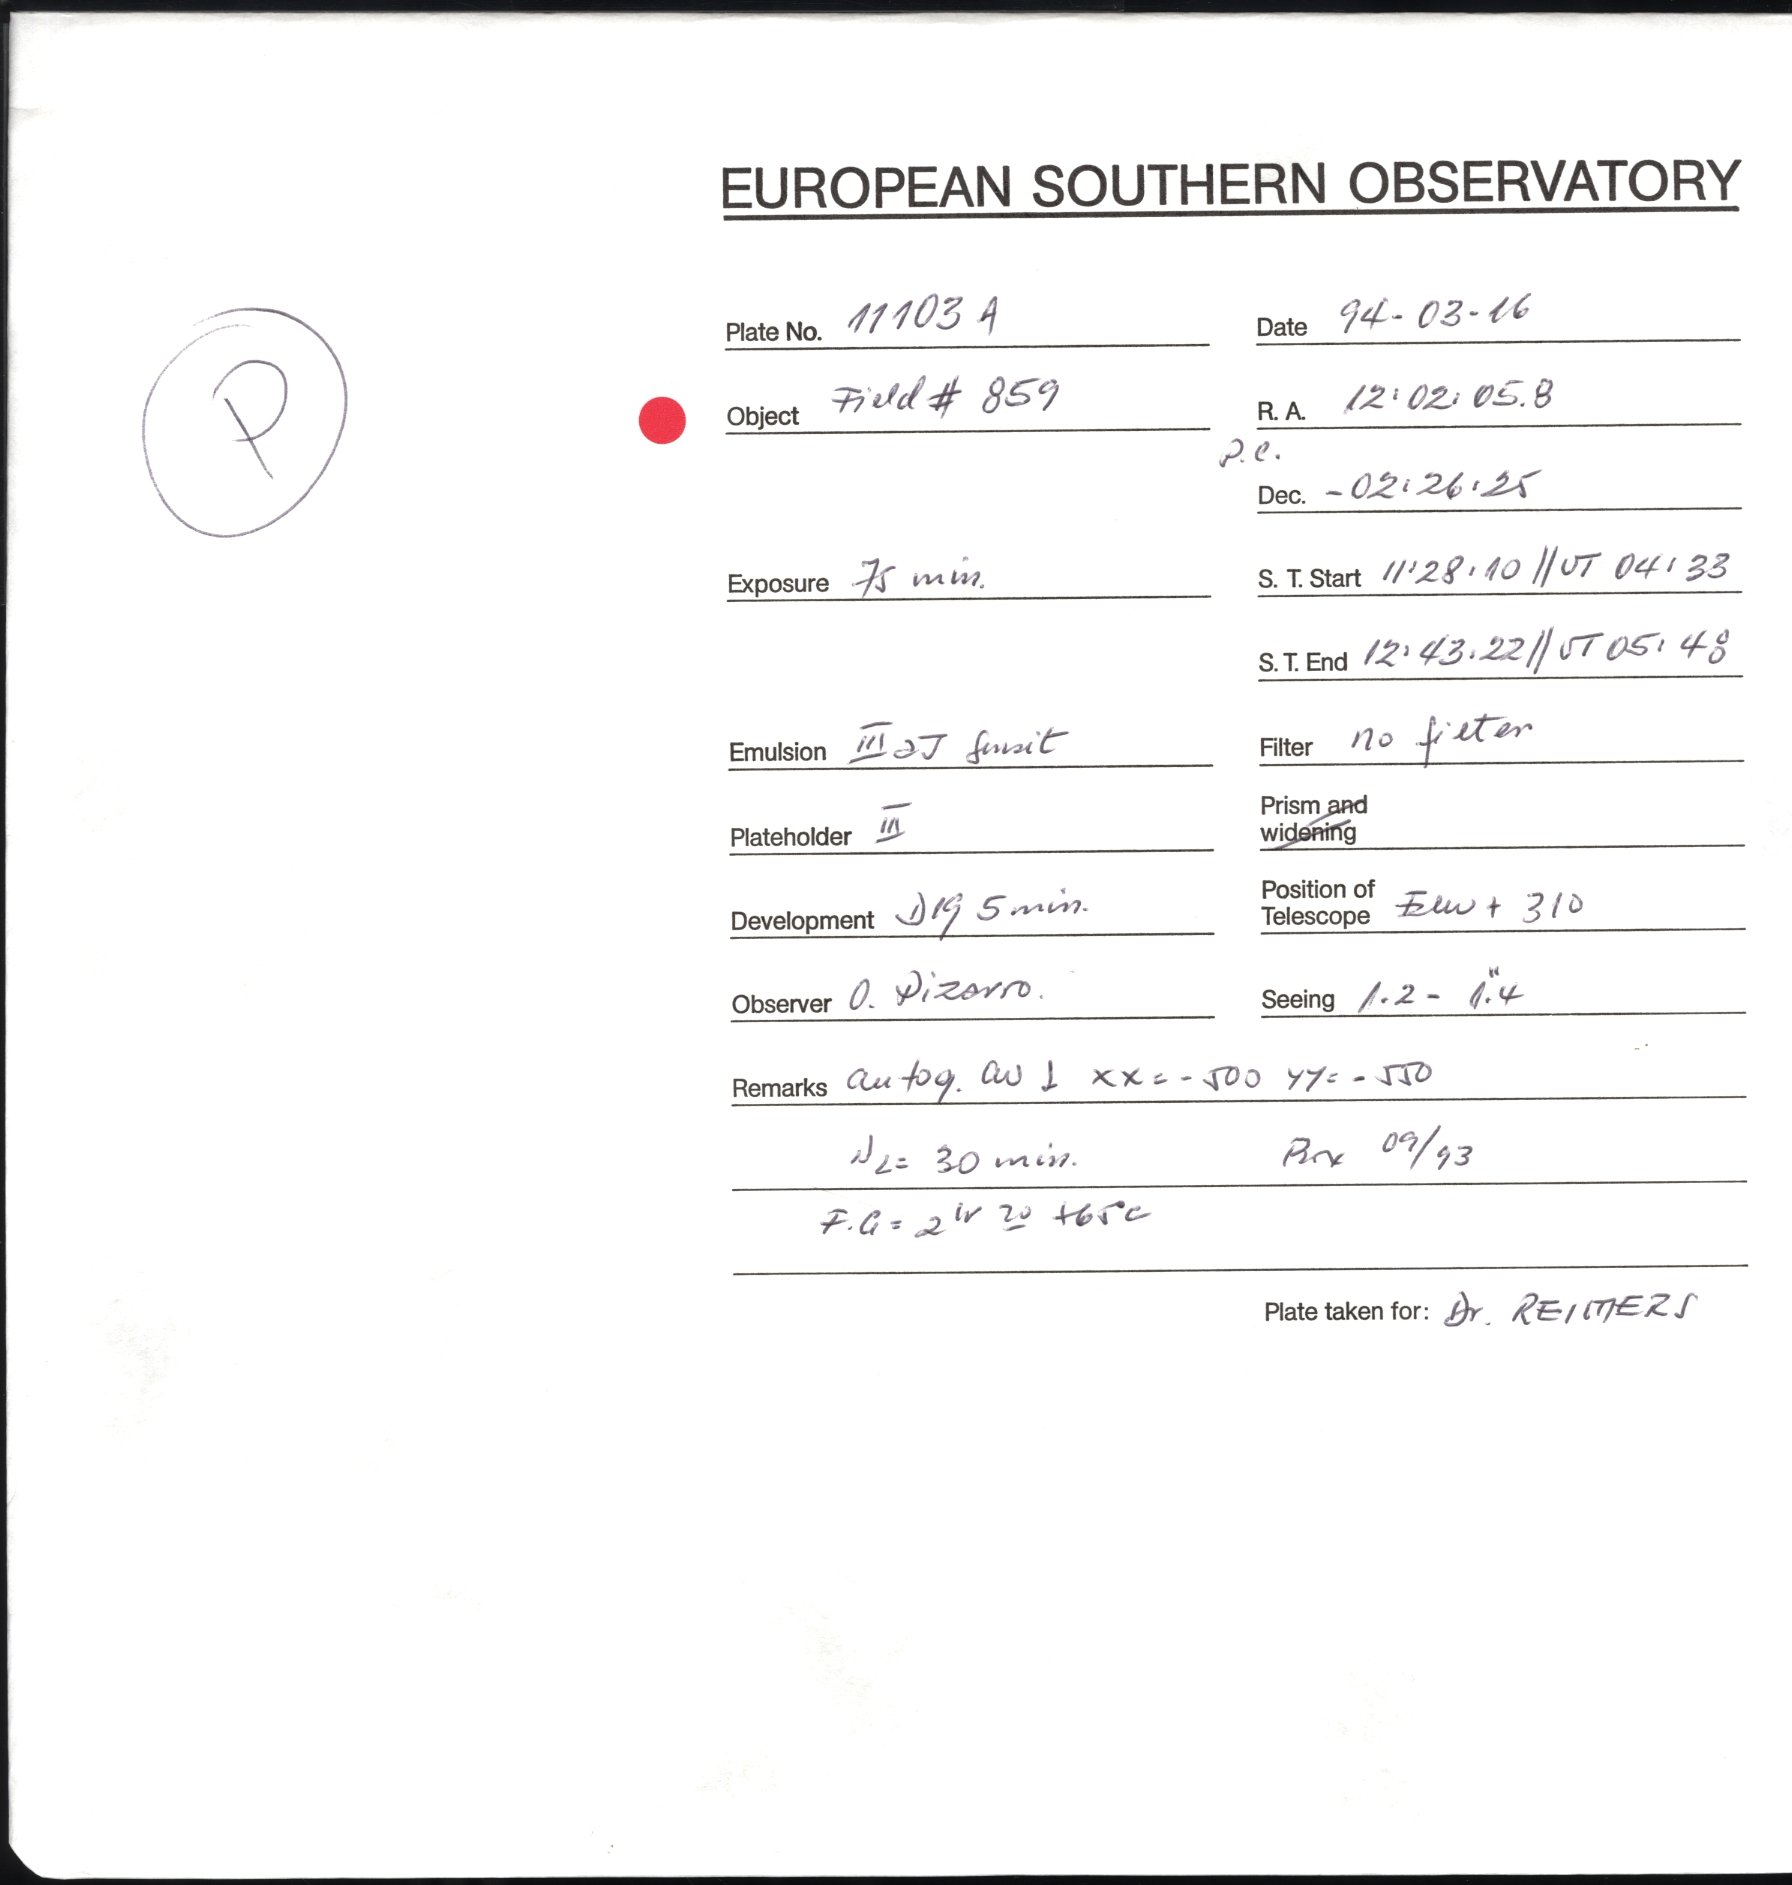 EUROPEAN SOUTHERN OBSERVATORY
P
Plate No. 11103 A Date 94-03-16
Object Field # 859 R. A. 12:02:05.8
P.C.
Dec. -02:26:25
Exposure 75 min. S. T. Start 11:28:10 // UT 04:33
S. T. End 12:43:22 // UT 05:48
Emulsion III aJ Filter no filter
Plateholder III Prism and widening
Development D19 5 min. Position of Telescope + 310
Observer O. Pizarro. Seeing 1.2 - 1".4
Remarks autog. xx = -500 yy = -550
N2 = 30 min. Box 09/93
F.G = 2 hr 20 +65°C
Plate taken for: Dr. REIMERS